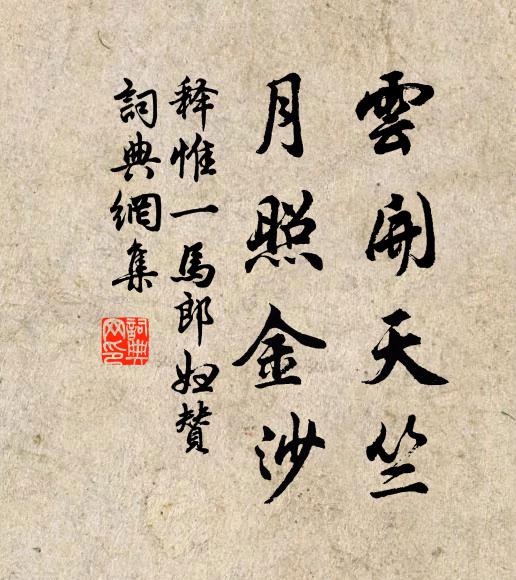 雲開天竺
月照金沙
释惟一馬郎妇贊
詞典網集
詞典网印